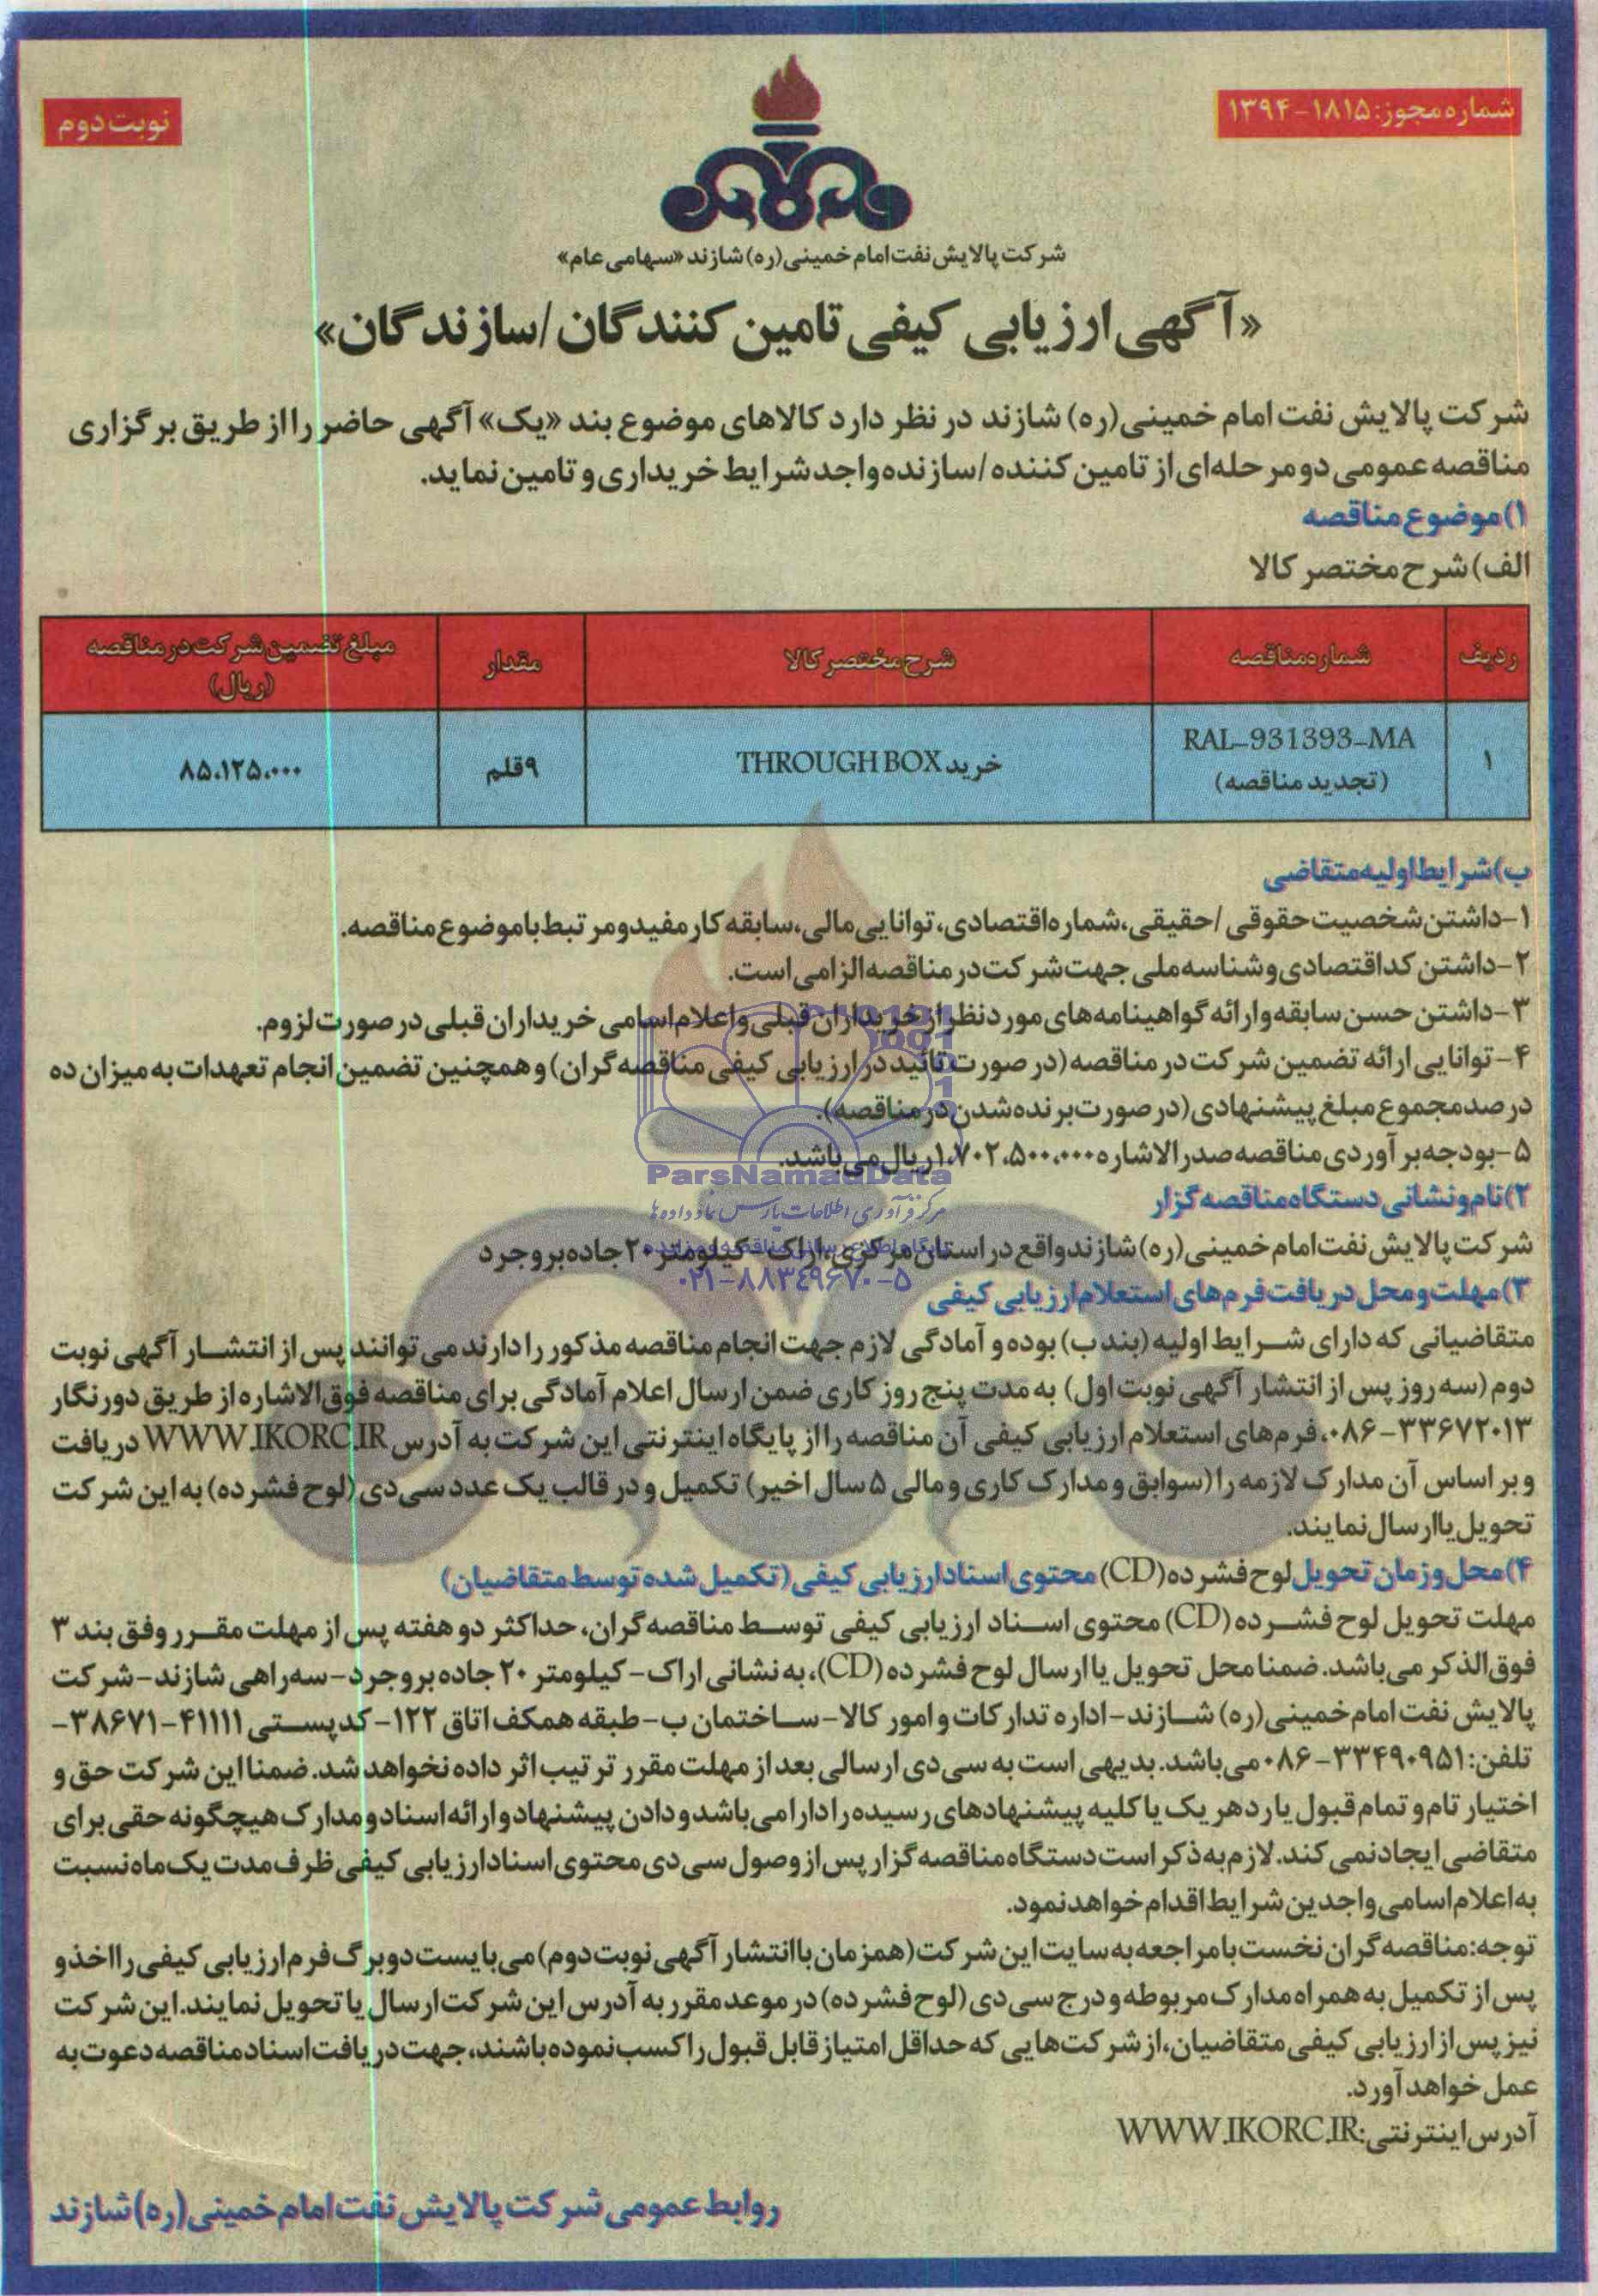 شماره مجوز: ۱۸۱۵-۱۳۹۴
نوبت دوم
شرکت پالایش نفت امام خمینی(ره) شازند «سهامی عام»
«آگهی ارزیابی کیفی تامین کنندگان/سازندگان»
شرکت پالایش نفت امام خمینی(ره) شازند در نظر دارد کالاهای موضوع بند «یک» آگهی حاضر را از طریق برگزاری
مناقصه عمومی دو مرحله‌ای از تامین کننده/سازنده واجد شرایط خریداری و تامین نماید.
۱)موضوع مناقصه
الف) شرح مختصر کالا
ردیف	شماره مناقصه	شرح مختصر کالا	مقدار	مبلغ تضمین شرکت در مناقصه (ریال)
۱	RAL-931393-MA (تجدید مناقصه)	خرید THROUGH BOX	۹ قلم	۸۵،۱۲۵،۰۰۰
ب)شرایط اولیه متقاضی
۱-داشتن شخصیت حقوقی /حقیقی،شماره اقتصادی، توانایی مالی،سابقه کار مفید و مرتبط با موضوع مناقصه.
۲-داشتن کد اقتصادی و شناسه ملی جهت شرکت در مناقصه الزامی است.
۳-داشتن حسن سابقه و ارائه گواهینامه‌های مورد نظر از خریداران قبلی و اعلام اسامی خریداران قبلی در صورت لزوم.
۴-توانایی ارائه تضمین شرکت در مناقصه (در صورت تائید در ارزیابی کیفی مناقصه گران) و همچنین تضمین انجام تعهدات به میزان ده
درصد مجموع مبلغ پیشنهادی (در صورت برنده شدن در مناقصه).
۵-بودجه برآوردی مناقصه صدرالاشاره ۱،۷۰۲،۵۰۰،۰۰۰ ریال می باشد.
ParsNamadData
مرکز فرآوری اطلاعات پارس نماد داده ها
پایگاه اطلاع رسانی مناقصه و مزایده
۰۲۱-۸۸۳۴۹۶۷۰-۵
۲)نام و نشانی دستگاه مناقصه گزار
شرکت پالایش نفت امام خمینی(ره) شازند واقع در استان مرکزی،اراک-کیلومتر ۲۰ جاده بروجرد
۳)مهلت و محل دریافت فرم های استعلام ارزیابی کیفی
متقاضیانی که دارای شرایط اولیه (بند ب) بوده و آمادگی لازم جهت انجام مناقصه مذکور را دارند می توانند پس از انتشار آگهی نوبت
دوم (سه روز پس از انتشار آگهی نوبت اول) به مدت پنج روز کاری ضمن ارسال اعلام آمادگی برای مناقصه فوق الاشاره از طریق دورنگار
۰۸۶-۳۳۶۷۲۰۱۳، فرم های استعلام ارزیابی کیفی آن مناقصه را از پایگاه اینترنتی این شرکت به آدرس WWW.IKORC.IR دریافت
و بر اساس آن مدارک لازمه را (سوابق و مدارک کاری و مالی ۵ سال اخیر) تکمیل و در قالب یک عدد سی دی (لوح فشرده) به این شرکت
تحویل یا ارسال نمایند.
۴)محل و زمان تحویل لوح فشرده (CD) محتوی اسناد ارزیابی کیفی (تکمیل شده توسط متقاضیان)
مهلت تحویل لوح فشرده (CD) محتوی اسناد ارزیابی کیفی توسط مناقصه گران، حداکثر دو هفته پس از مهلت مقرر وفق بند ۳
فوق الذکر می باشد. ضمنا محل تحویل یا ارسال لوح فشرده (CD)، به نشانی اراک- کیلومتر ۲۰ جاده بروجرد-سه راهی شازند-شرکت
پالایش نفت امام خمینی(ره) شازند-اداره تدارکات و امور کالا-ساختمان ب-طبقه همکف اتاق ۱۲۲-کد پستی ۴۱۱۱۱-۳۸۶۷۱-
تلفن: ۰۸۶-۳۳۴۹۰۹۵۱ می باشد. بدیهی است به سی دی ارسالی بعد از مهلت مقرر ترتیب اثر داده نخواهد شد. ضمنا این شرکت حق و
اختیار تام و تمام قبول یا رد هر یک یا کلیه پیشنهادهای رسیده را دارا می باشد و دادن پیشنهاد و ارائه اسناد و مدارک هیچگونه حقی برای
متقاضی ایجاد نمی کند. لازم به ذکر است دستگاه مناقصه گزار پس از وصول سی دی محتوی اسناد ارزیابی کیفی ظرف مدت یک ماه نسبت
به اعلام اسامی واجدین شرایط اقدام خواهد نمود.
توجه: مناقصه گران نخست با مراجعه به سایت این شرکت (همزمان با انتشار آگهی نوبت دوم) می بایست دو برگ فرم ارزیابی کیفی را اخذ و
پس از تکمیل به همراه مدارک مربوطه و درج سی دی (لوح فشرده) در موعد مقرر به آدرس این شرکت ارسال یا تحویل نمایند. این شرکت
نیز پس از ارزیابی کیفی متقاضیان، از شرکت هایی که حداقل امتیاز قابل قبول را کسب نموده باشند، جهت دریافت اسناد مناقصه دعوت به
عمل خواهد آورد.
آدرس اینترنتی: WWW.IKORC.IR
روابط عمومی شرکت پالایش نفت امام خمینی(ره) شازند